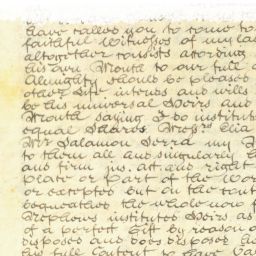 have called you to come to
faithful Witnesses of my la
altogether consists according
his own Mouth to our full
Almughty should be pleased
other Life intends and wills
be his universal Heirs and
Mouth saying I do institute
equal Shares Messrs Elia
Mr Salamon Serra my
to them all and singularly
and firm jus. Act. and right
place or part of the Wor
or excepted but on the cont
bequeathes the whole now
Nephews instituted Heirs as
of a perfect Gift by reason o
disposes and does disposes he
his full Content to have